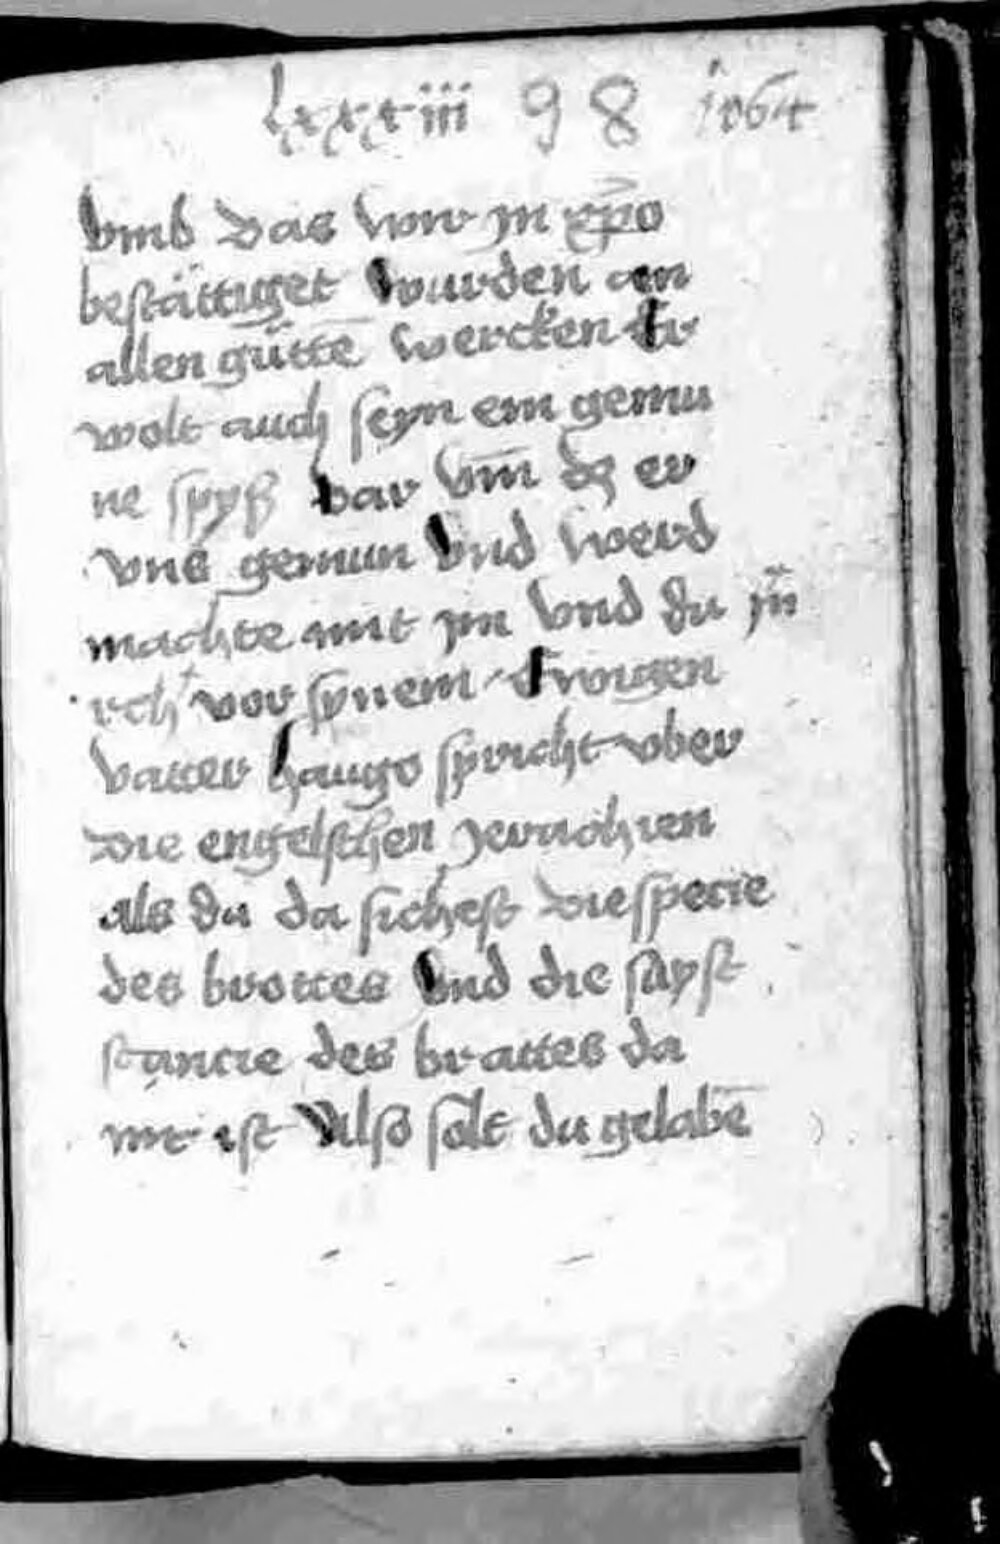 lxxxiiii 98
vmb das wir jn xp̄o
bestättiget wurden an
allen gůttē wercken Er
wolt auch seyn ein gemei
ne spyß dar vm̄ dz er
vns gemein vnd werd
machte mit jm vnd du
vor synem Ewigen
vatter haugo spricht vber
die engelschen Jerrichien
als du da sichest die specie
des brottes vnd die sայst
stancie des brottes da
mit ist Also solt du gelabē